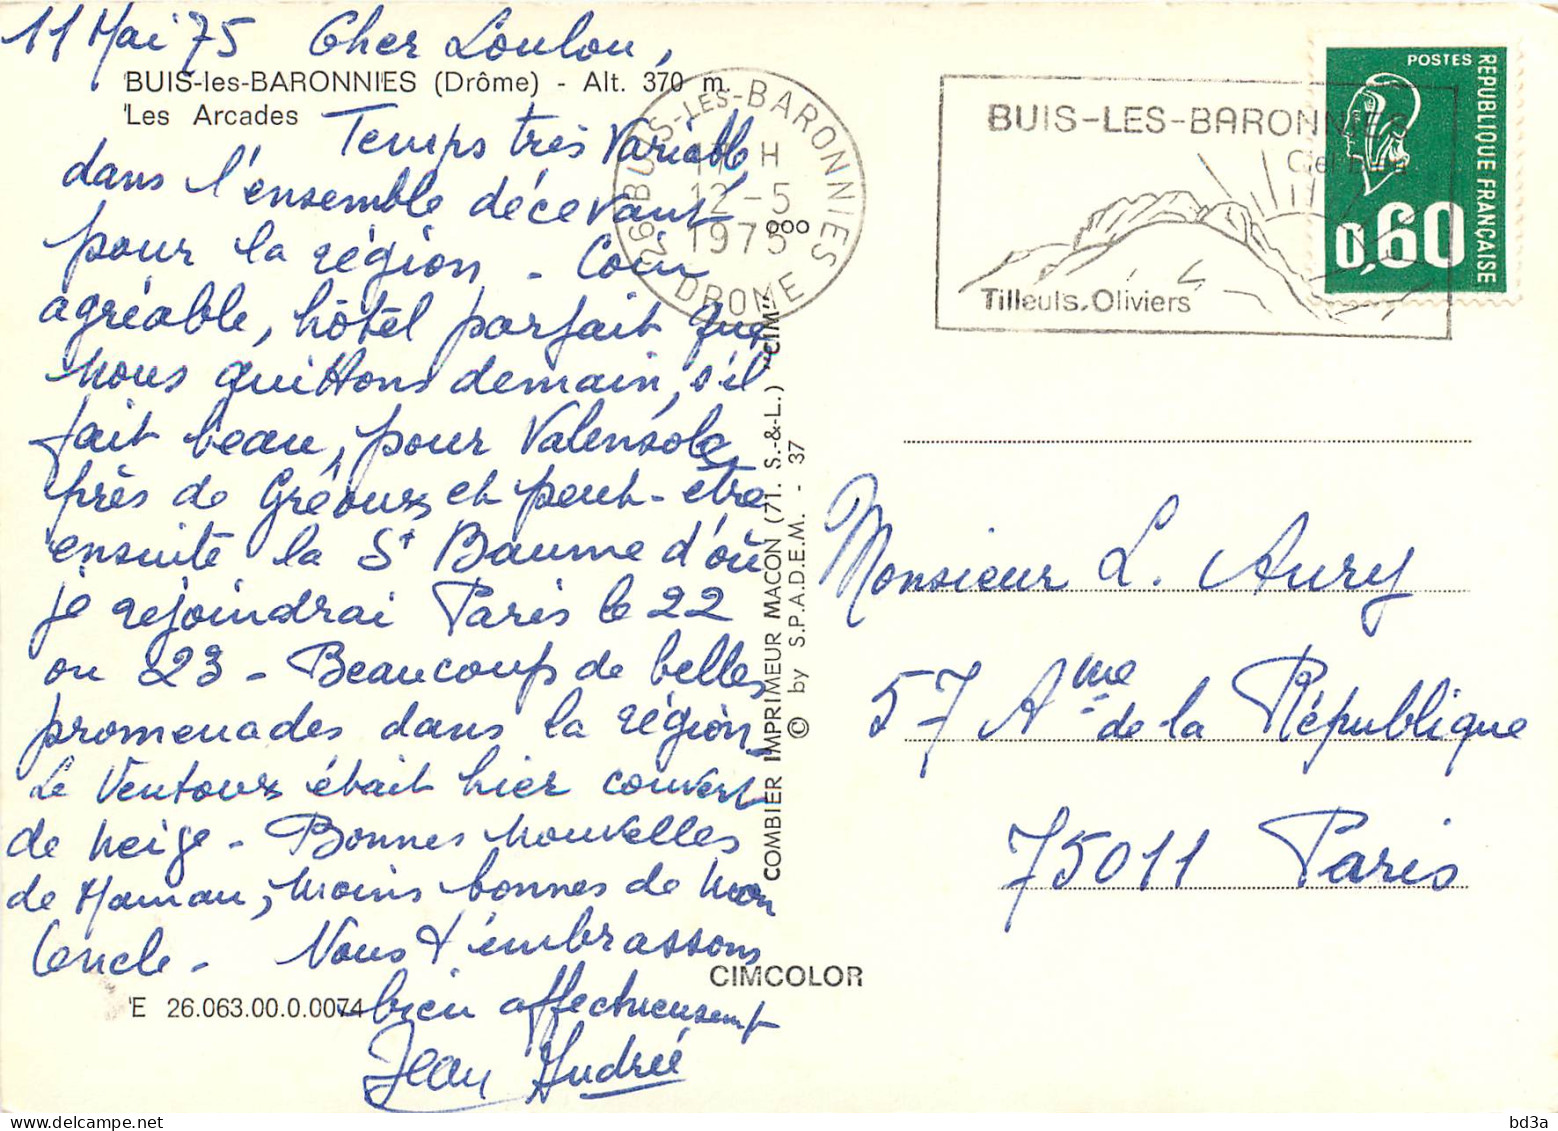 11 Mai 75 Cher Loulou,
BUIS-les-BARONNIES (Drôme) - Alt. 370 m.
Les Arcades
Temps très variable,
dans l'ensemble décevant
pour la région - Coin
agréable, hôtel parfait que
nous quittons demain, s'il
fait beau, pour Valensole,
près de Gréoux et peut-être
ensuite la St Baume d'où
je rejoindrai Paris le 22
ou 23 - Beaucoup de belles
promenades dans la région -
Le Ventoux était hier couvert
de neige - Bonnes nouvelles
de Maman, moins bonnes de mon
oncle - Nous t'embrassons
bien affectueusement
Jean Andrée
E 26.063.00.0.0074
CIMCOLOR
COMBIER IMPRIMEUR MACON (71. S.-&-L.) "CIM"
© by S.P.A.D.E.M. - 37
26 BUIS-LES-BARONNIES
17 H
12-5
1975
DROME
BUIS-LES-BARONNIES
Ciel bleu
Tilleuls. Oliviers
POSTES
REPUBLIQUE FRANÇAISE
0,60
Monsieur L. Aury
57 Avue de la République
75011 Paris
bd3a